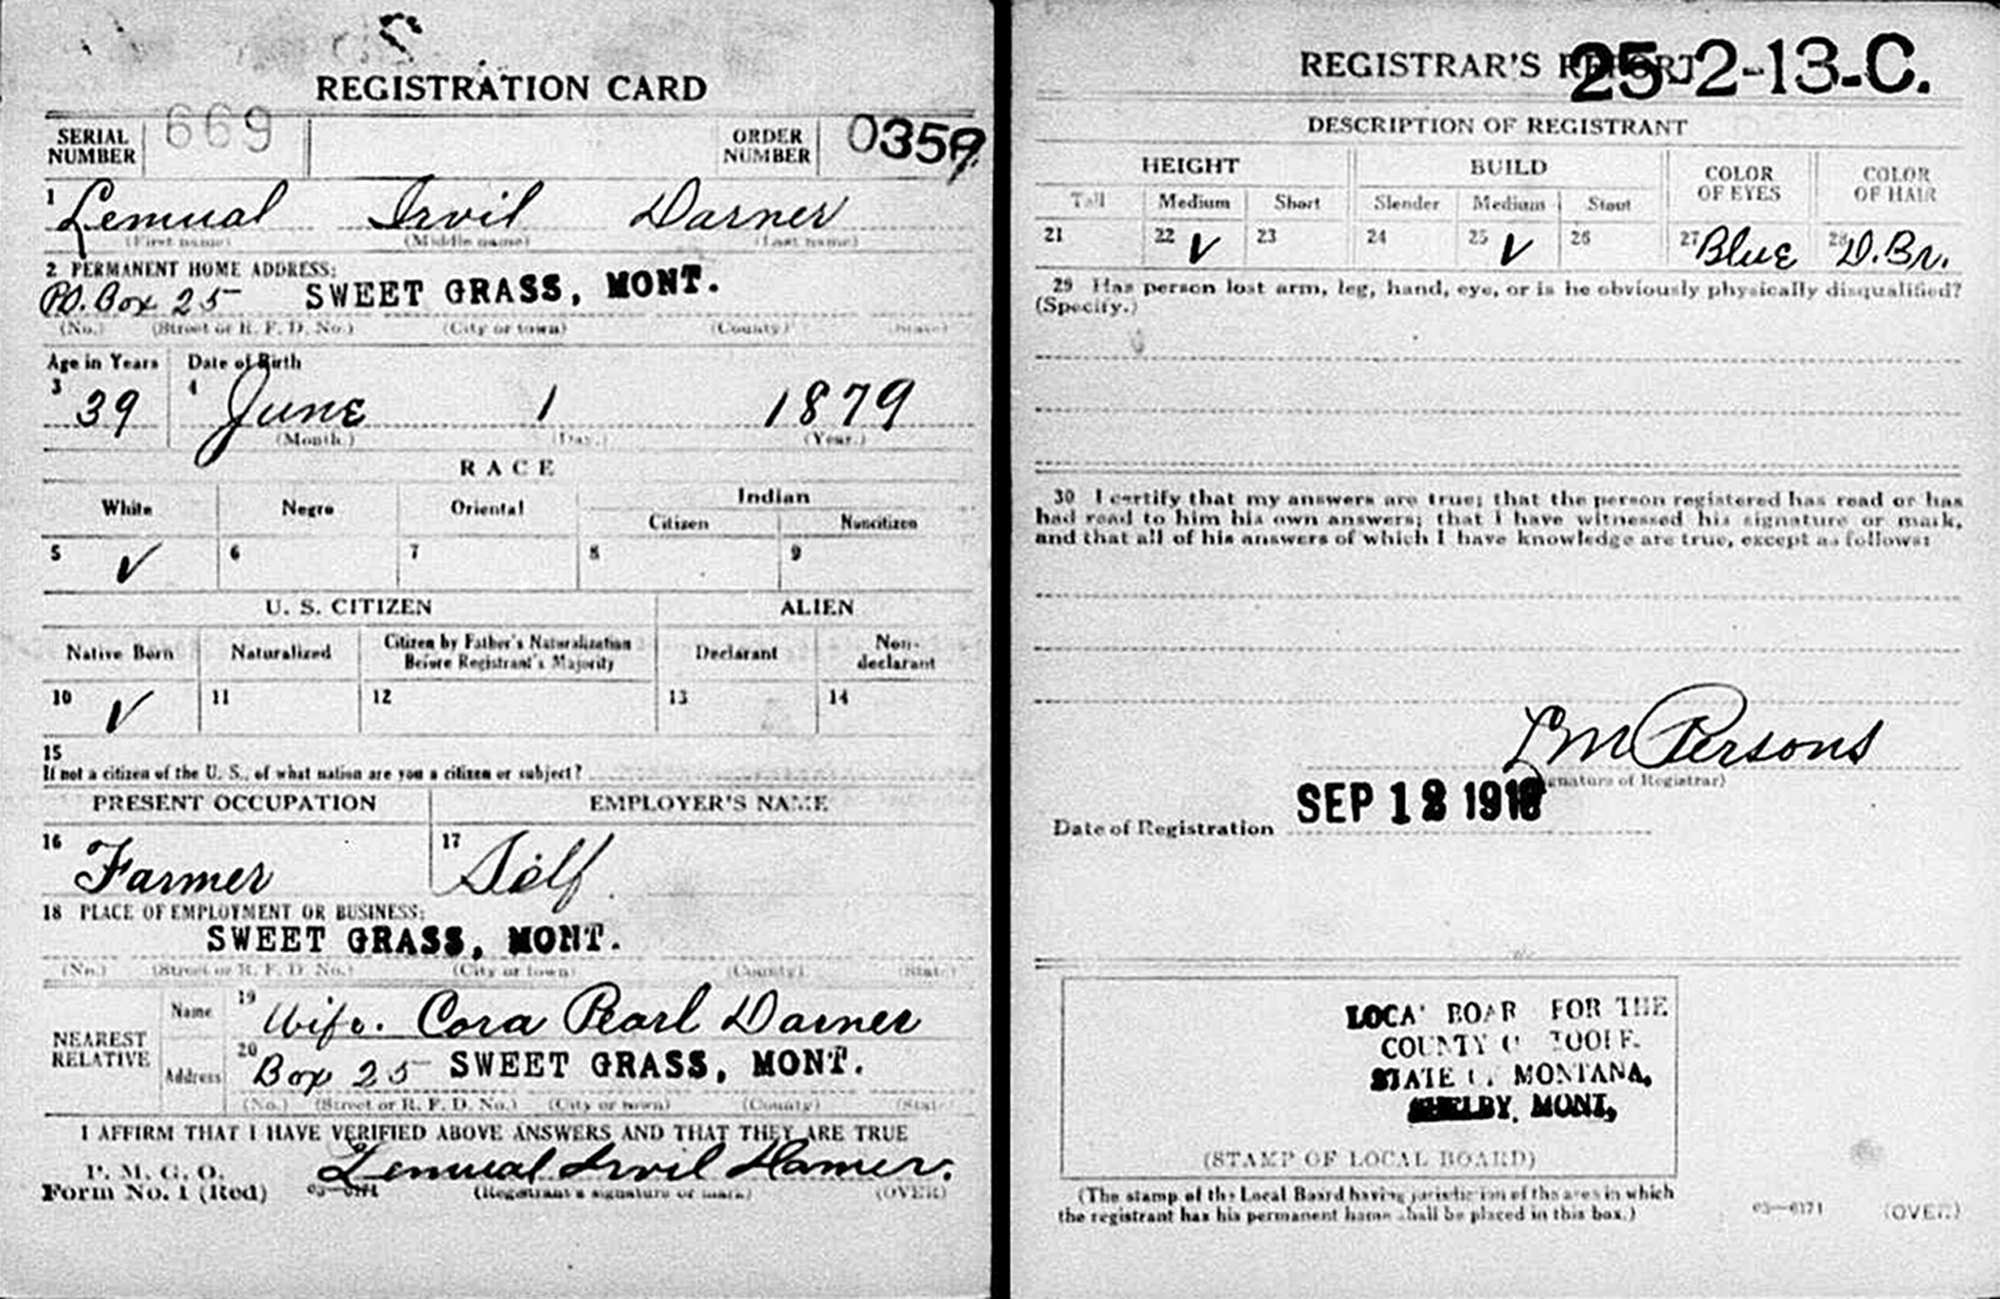 REGISTRATION CARD
SERIAL NUMBER 669 ORDER NUMBER 0359
1 Lemual Irvil Darner
(First name) (Middle name) (Last name)
2 PERMANENT HOME ADDRESS:
P.O. Box 25 SWEET GRASS, MONT.
(No.) (Street or R. F. D. No.) (City or town) (County) (State)
Age in Years Date of Birth
3 39 4 June 1 1879
(Month.) (Day.) (Year.)
RACE
White Negro Oriental Indian
Citizen Noncitizen
5 ✓ 6 7 8 9
U. S. CITIZEN ALIEN
Native Born Naturalized Citizen by Father's Naturalization Before Registrant's Majority Declarant Non-declarant
10 ✓ 11 12 13 14
15
If not a citizen of the U. S., of what nation are you a citizen or subject?
PRESENT OCCUPATION EMPLOYER'S NAME
16 Farmer 17 Self
18 PLACE OF EMPLOYMENT OR BUSINESS:
SWEET GRASS, MONT.
(No.) (Street or R. F. D. No.) (City or town) (County) (State)
NEAREST RELATIVE Name 19 Wife. Cora Pearl Darner
Address 20 Box 25 SWEET GRASS, MONT.
(No.) (Street or R. F. D. No.) (City or town) (County) (State
I AFFIRM THAT I HAVE VERIFIED ABOVE ANSWERS AND THAT THEY ARE TRUE
P. M. G. O.
Form No. 1 (Red) 03—6171 Lemual Irvil Darner.
(Registrant's signature or mark) (OVER)
REGISTRAR'S REPORT 25-2-13-C.
DESCRIPTION OF REGISTRANT
HEIGHT BUILD COLOR OF EYES COLOR OF HAIR
Tall Medium Short Slender Medium Stout
21 22 ✓ 23 24 25 ✓ 26 27 Blue 28 D. Br.
29 Has person lost arm, leg, hand, eye, or is he obviously physically disqualified?
(Specify.)
30 I certify that my answers are true; that the person registered has read or has
had read to him his own answers; that I have witnessed his signature or mark,
and that all of his answers of which I have knowledge are true, except as follows:
Persons
(Signature of Registrar)
Date of Registration SEP 12 1918
LOCAL BOARD FOR THE
COUNTY OF TOOLE.
STATE OF MONTANA,
SHELBY, MONT,
(STAMP OF LOCAL BOARD)
(The stamp of the Local Board having jurisdiction of the area in which
the registrant has his permanent home shall be placed in this box.)
03—6171 (OVER)